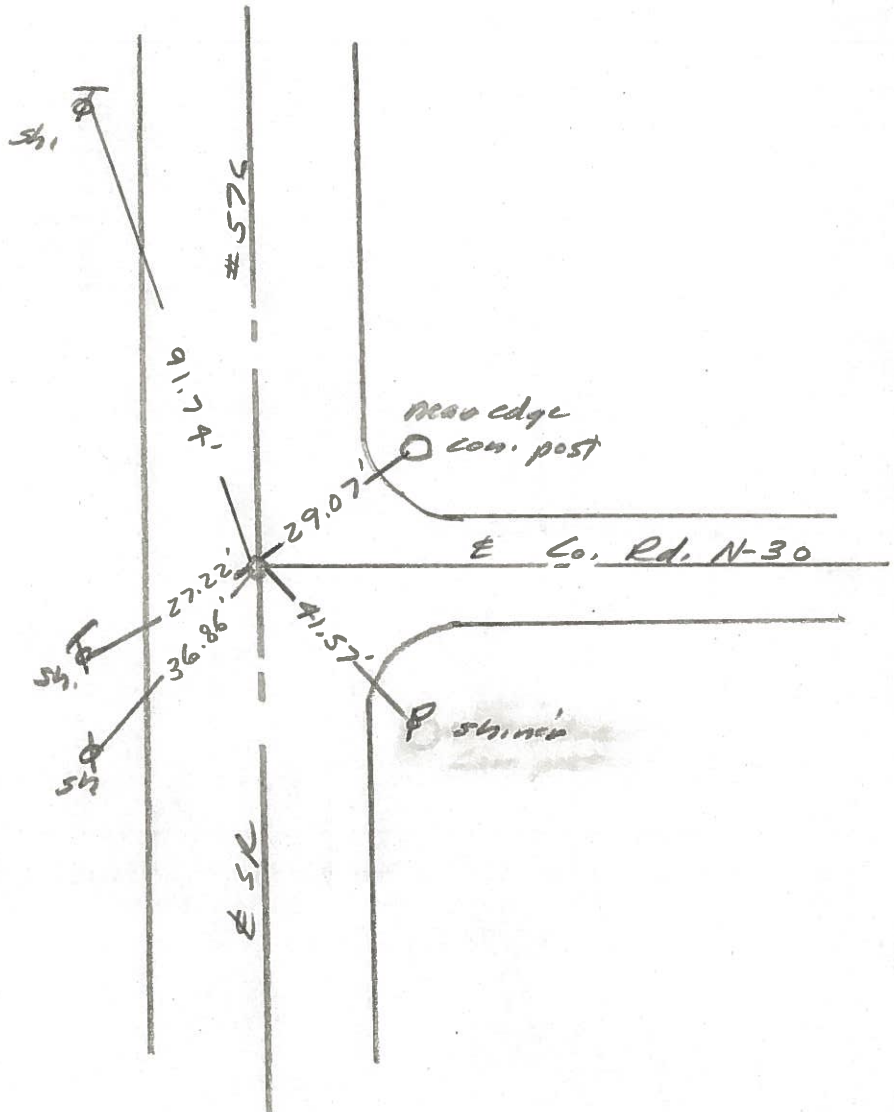 sh.
# 576
91.74'
near edge
con. post
29.07'
℄ Co. Rd. N-30
27.22'
36.86'
41.57'
sh.
sh
℄ SR